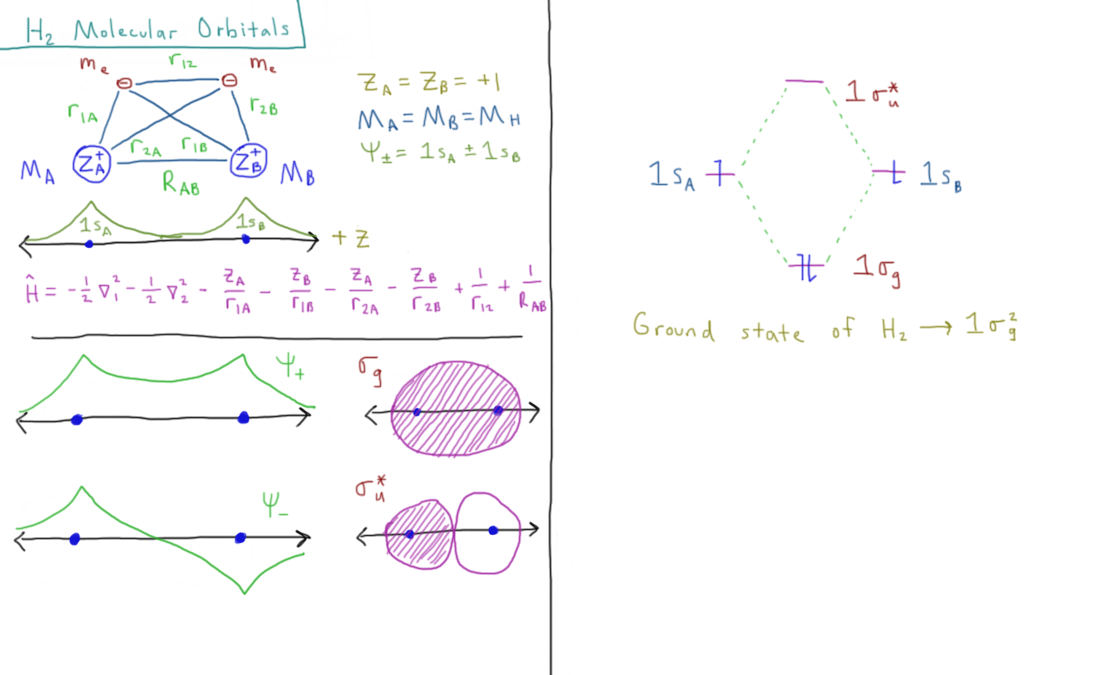 H₂ Molecular Orbitals
mₑ r₁₂ mₑ
r₁A r₂B
r₂A r₁B
M_A Z_A⁺ Z_B⁺ M_B
R_AB
Z_A = Z_B = +1
M_A = M_B = M_H
Ψ± = 1s_A ± 1s_B
1s_A 1s_B + Z
Ĥ = -1/2 ∇₁² - 1/2 ∇₂² - Z_A/r₁A - Z_B/r₁B - Z_A/r₂A - Z_B/r₂B + 1/r₁₂ + 1/R_AB
Ψ₊ σ_g
Ψ₋ σ_u*
1σ_u*
1s_A 1s_B
1σ_g
Ground state of H₂ → 1σ_g²